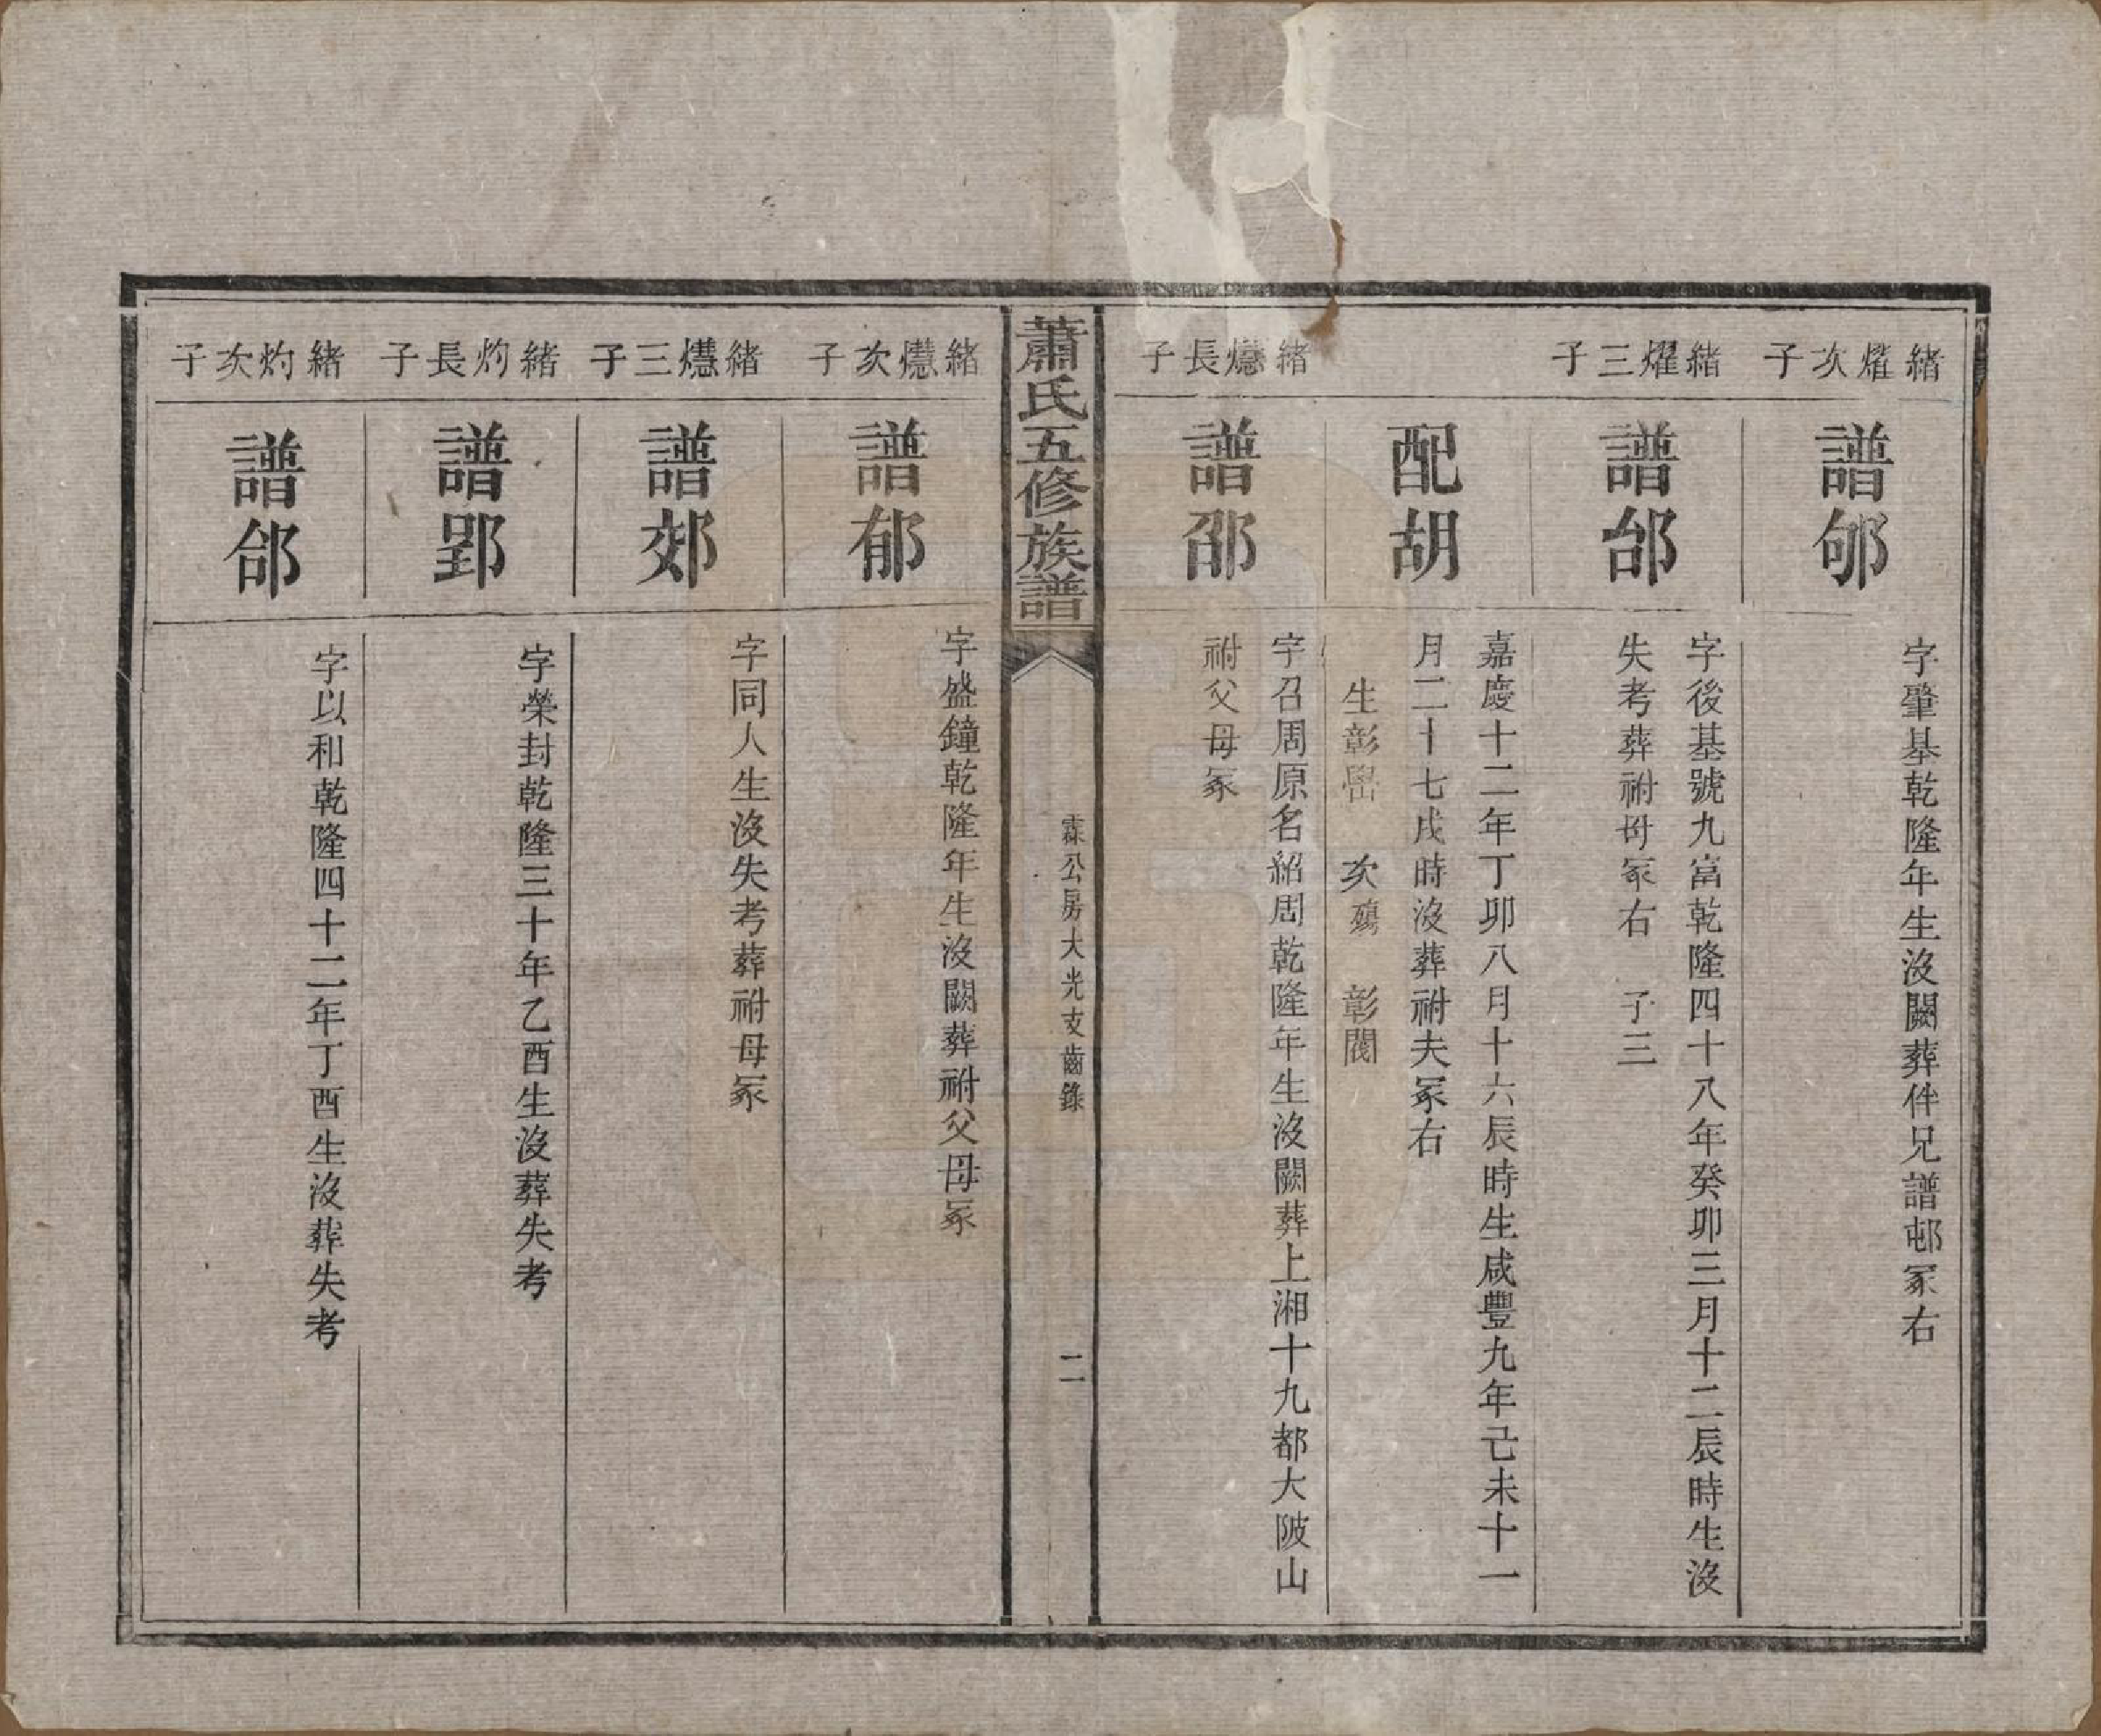 緒燿次子
譜邭
字肇基乾隆年生沒闕葬伴兄譜邨冢右
緒燿三子
譜邰
字後基號九富乾隆四十八年癸卯三月十二辰時生沒
失考葬祔母冢右 子三
配胡
嘉慶十二年丁卯八月十六辰時生咸豐九年己未十一
月二十七戌時沒葬祔夫冢右
生彰 次殤 彰閣
緒長子
譜邵
字召周原名紹周乾隆年生沒闕葬上湘十九都大陂山
祔父母冢
蕭氏五修族譜
霖公房大光支齒錄
二
緒次子
譜郁
字盛鐘乾隆年生沒闕葬祔父母冢
緒三子
譜郊
字同人生沒失考葬祔母冢
緒灼長子
譜郢
字榮封乾隆三十年乙酉生沒葬失考
緒灼次子
譜郃
字以和乾隆四十二年丁酉生沒葬失考